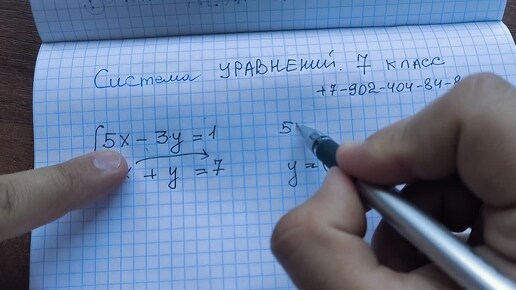 Система УРАВНЕНИЙ. 7 класс
+7-902-404-84-8
5x - 3·y = 1
5
+ y = 7
y =